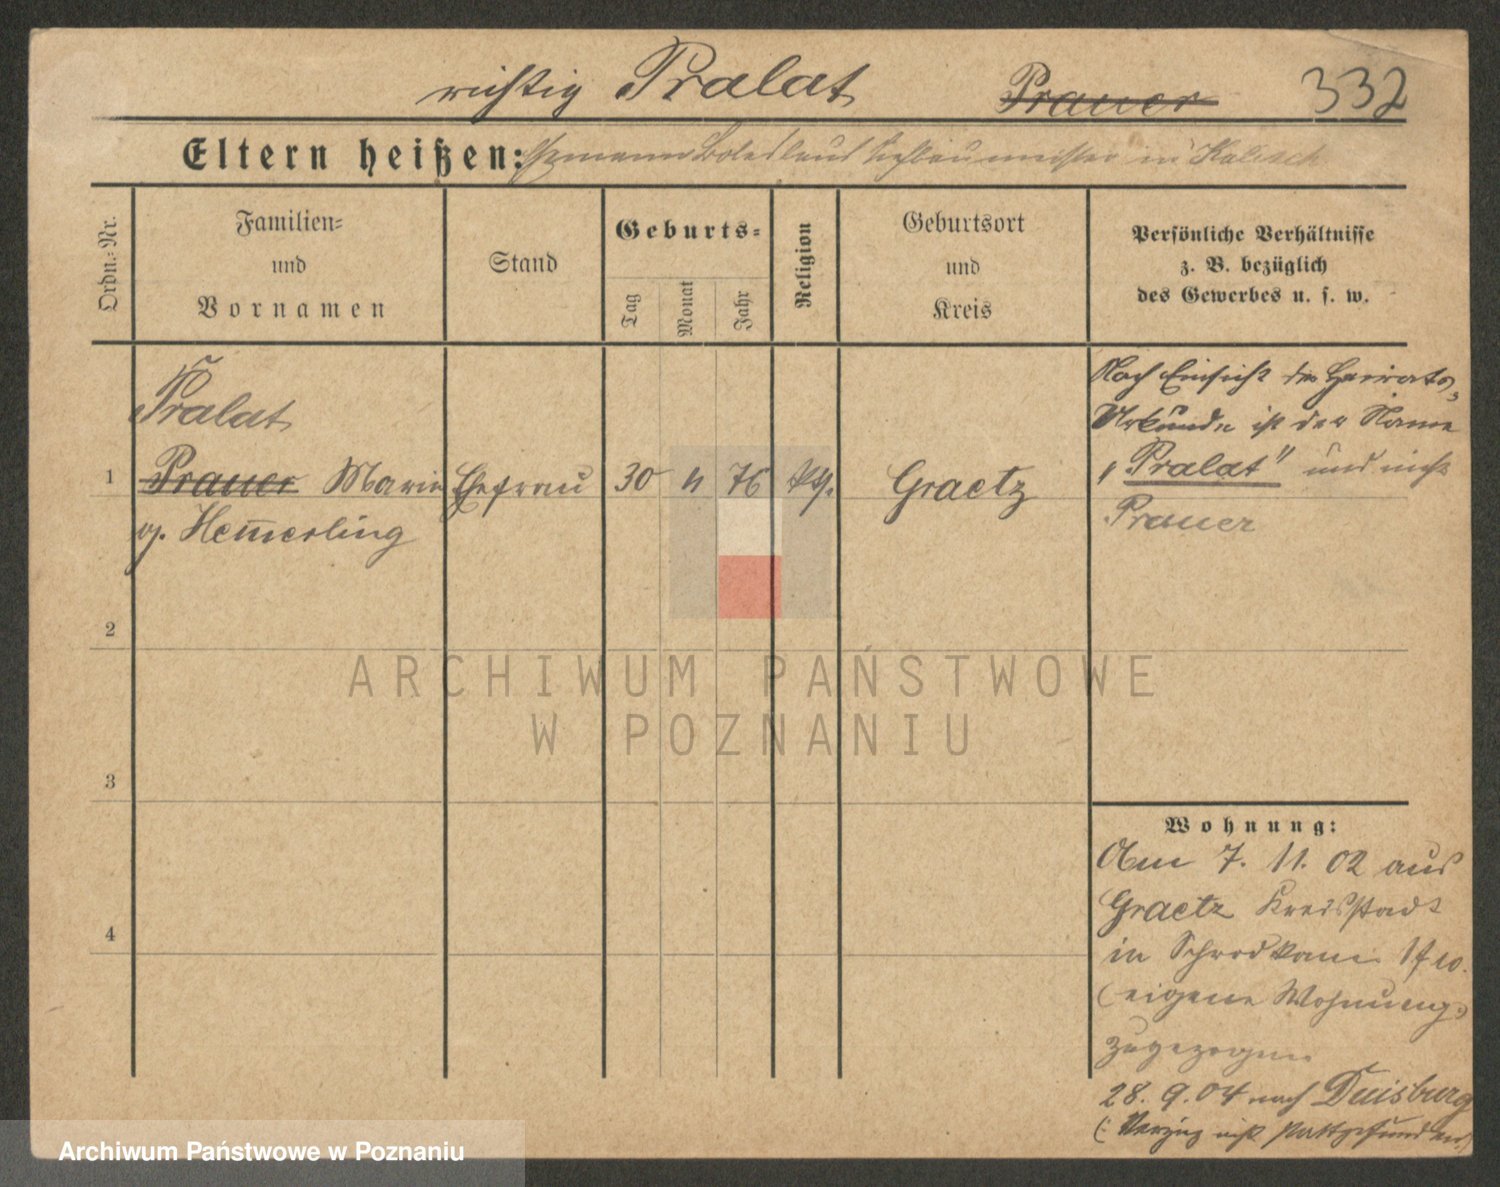 richtig Pralat Prauer 332
Eltern heißen: Ehemann Boleslaus Tiefbaumeister in Kalisch
Ordn.-Nr.
Familien- und Vornamen
Stand
Geburts-
Tag
Monat
Jahr
Religion
Geburtsort und Kreis
Persönliche Verhältnisse
z. B. bezüglich
des Gewerbes u. s. w.
Pralat
1 Prauer Marie Ehefrau 30 11 76 kth. Graetz
g. Hemerling
Nach Einsicht der Heirats-
Urkunde ist der Name
"Pralat" und nicht
Prauer
2
3
4
Wohnung:
Am 7. 11. 02 aus
Graetz Kreisstadt
in
(eigene Wohnung)
zugezogen
28. 9. 04 nach Duisburg
(: Verzug nicht stattgefunden)
ARCHIWUM PAŃSTWOWE
W POZNANIU
Archiwum Państwowe w Poznaniu